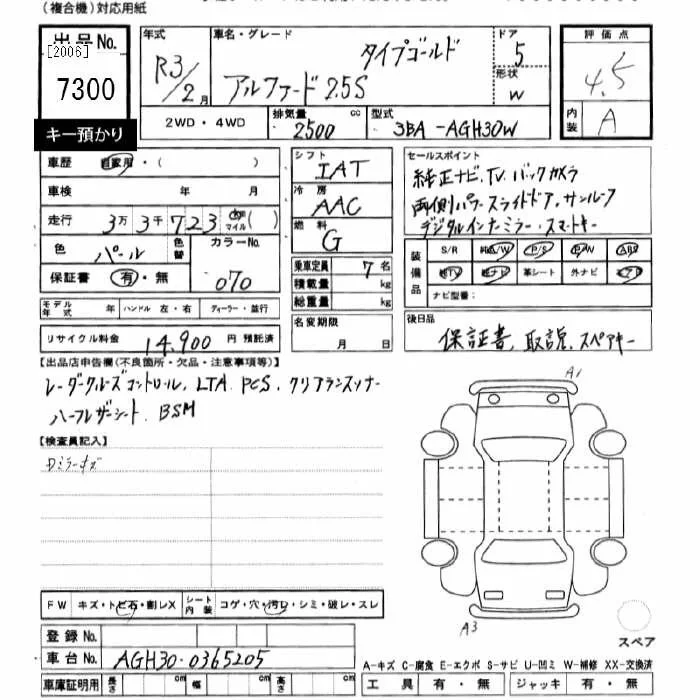 (複合機)対応用紙
出品No.
[2006]
7300
キー預かり
年式
R3/2月
車名・グレード
タイプゴールド
アルファード 2.5S
ドア
5
形状
W
評価点
4.5
内装
A
2WD・4WD
排気量
2500 cc
型式
3BA-AGH30W
車歴 自家用・( )
車検 年 月
走行 3万3千723 km マイル ( )
色 パール 色替
カラーNo.
070
保証書 有・無
シフト
IAT
冷房
AAC
燃料
G
乗車定員 7名
積載量 kg
総重量 kg
セールスポイント
純正ナビ、TV、バックカメラ
両側パワースライドドア、サンルーフ
デジタルインナーミラー、スマートキー
装備品
S/R 純A/W P/S P/W ABS
純TV 純ナビ 革シート 外ナビ エアB
ナビ型番:
モデル年式 年 ハンドル 左・右 ディーラー・並行
リサイクル料金 14,900 円 預託済
名変期限
月 日
後日品
保証書、取説、スペアキー
【出品店申告欄(不良箇所・欠品・注意事項等)】
レーダークルーズコントロール、LTA、PCS、クリアランスソナー
ハーフレザーシート、BSM
【検査員記入】
Rミラーキズ
A1
A3
スペア
FW キズ・トビ石・割レX シート内装 コゲ・穴・汚レ・シミ・破レ・スレ
登録No.
車台No. AGH30-0365205
A-キズ C-腐食 E-エクボ S-サビ U-凹ミ W-補修 XX-交換済
車庫証明用 長さ cm 幅 cm 高さ cm
工具 有・無 ジャッキ 有・無